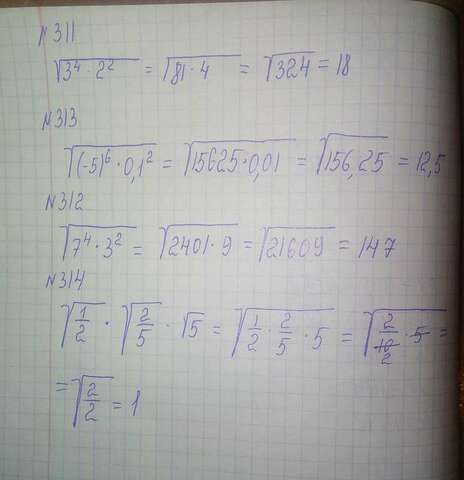 №311
√(3⁴ · 2²) = √(81 · 4) = √324 = 18
№313
√((-5)⁶ · 0,1²) = √(15625 · 0,01) = √156,25 = 12,5
№312
√(7⁴ · 3²) = √(2401 · 9) = √21609 = 147
№314
√(1/2) · √(2/5) · √5 = √(1/2 · 2/5 · 5) = √(2/10 · 5) =
2
= √(2/2) = 1